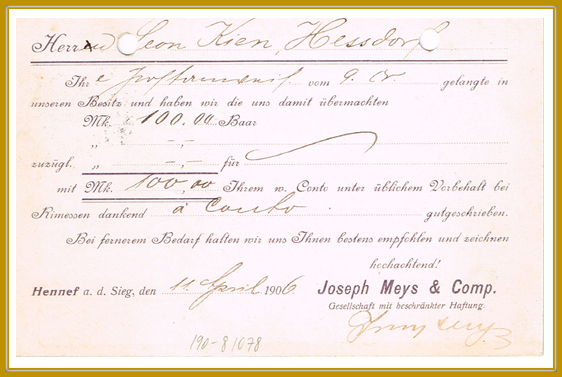 Herrn Leon Kien, Hessdorf
Ihre Postanweis vom 9. cr. gelangte in
unseren Besitz und haben wir die uns damit übermachten
Mk. 100.00 Baar
„ -.-
zuzügl. „ -.- für
mit Mk. 100,00 Ihrem w. Conto unter üblichem Vorbehalt bei
Rimessen dankend à Conto gutgeschrieben.
Bei fernerem Bedarf halten wir uns Ihnen bestens empfohlen und zeichnen
hochachtend!
Hennef a. d. Sieg, den 11. April 1906 Joseph Meys & Comp.
Gesellschaft mit beschränkter Haftung.
190-8/078